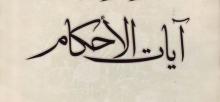 آيات الأحكام